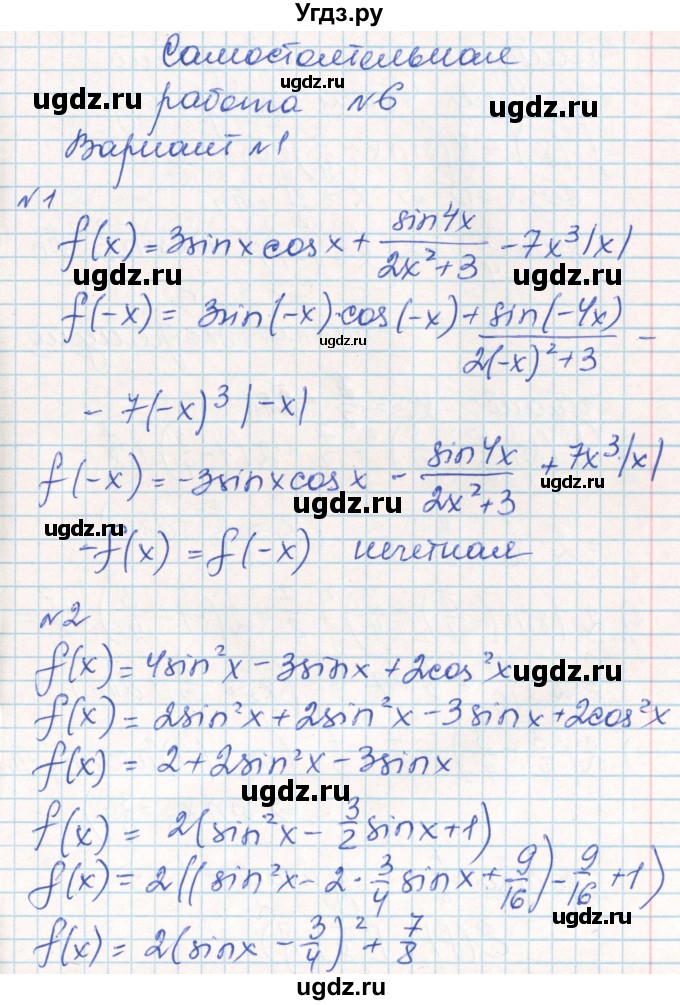 Угдз.ру
Самостоятельная
ugdz.ru
работа №6
ugdz.ru
Вариант №1
№1
f(x) = 3sinxcosx + sin4x/(2x²+3) - 7x³|x|
ugdz.ru
ugdz.ru
f(-x) = 3sin(-x)·cos(-x) + sin(-4x)/(2(-x)²+3) -
ugdz.ru
- 7(-x)³|-x|
f(-x) = -3sinxcosx - sin4x/(2x²+3) + 7x³|x|
ugdz.ru
ugdz.ru
ugdz.ru
ugdz.ru
-f(x) = f(-x) нечетная
№2
f(x) = 4sin²x - 3sinx + 2cos²x
ugdz.ru
ugdz.ru
f(x) = 2sin²x + 2sin²x - 3sinx + 2cos²x
f(x) = 2 + 2sin²x - 3sinx
ugdz.ru
f(x) = 2(sin²x - 3/2 sinx + 1)
ugdz.ru
f(x) = 2((sin²x - 2·3/4 sinx + 9/16) - 9/16 + 1)
ugdz.ru
f(x) = 2(sinx - 3/4)² + 7/8
ugdz.ru
ugdz.ru